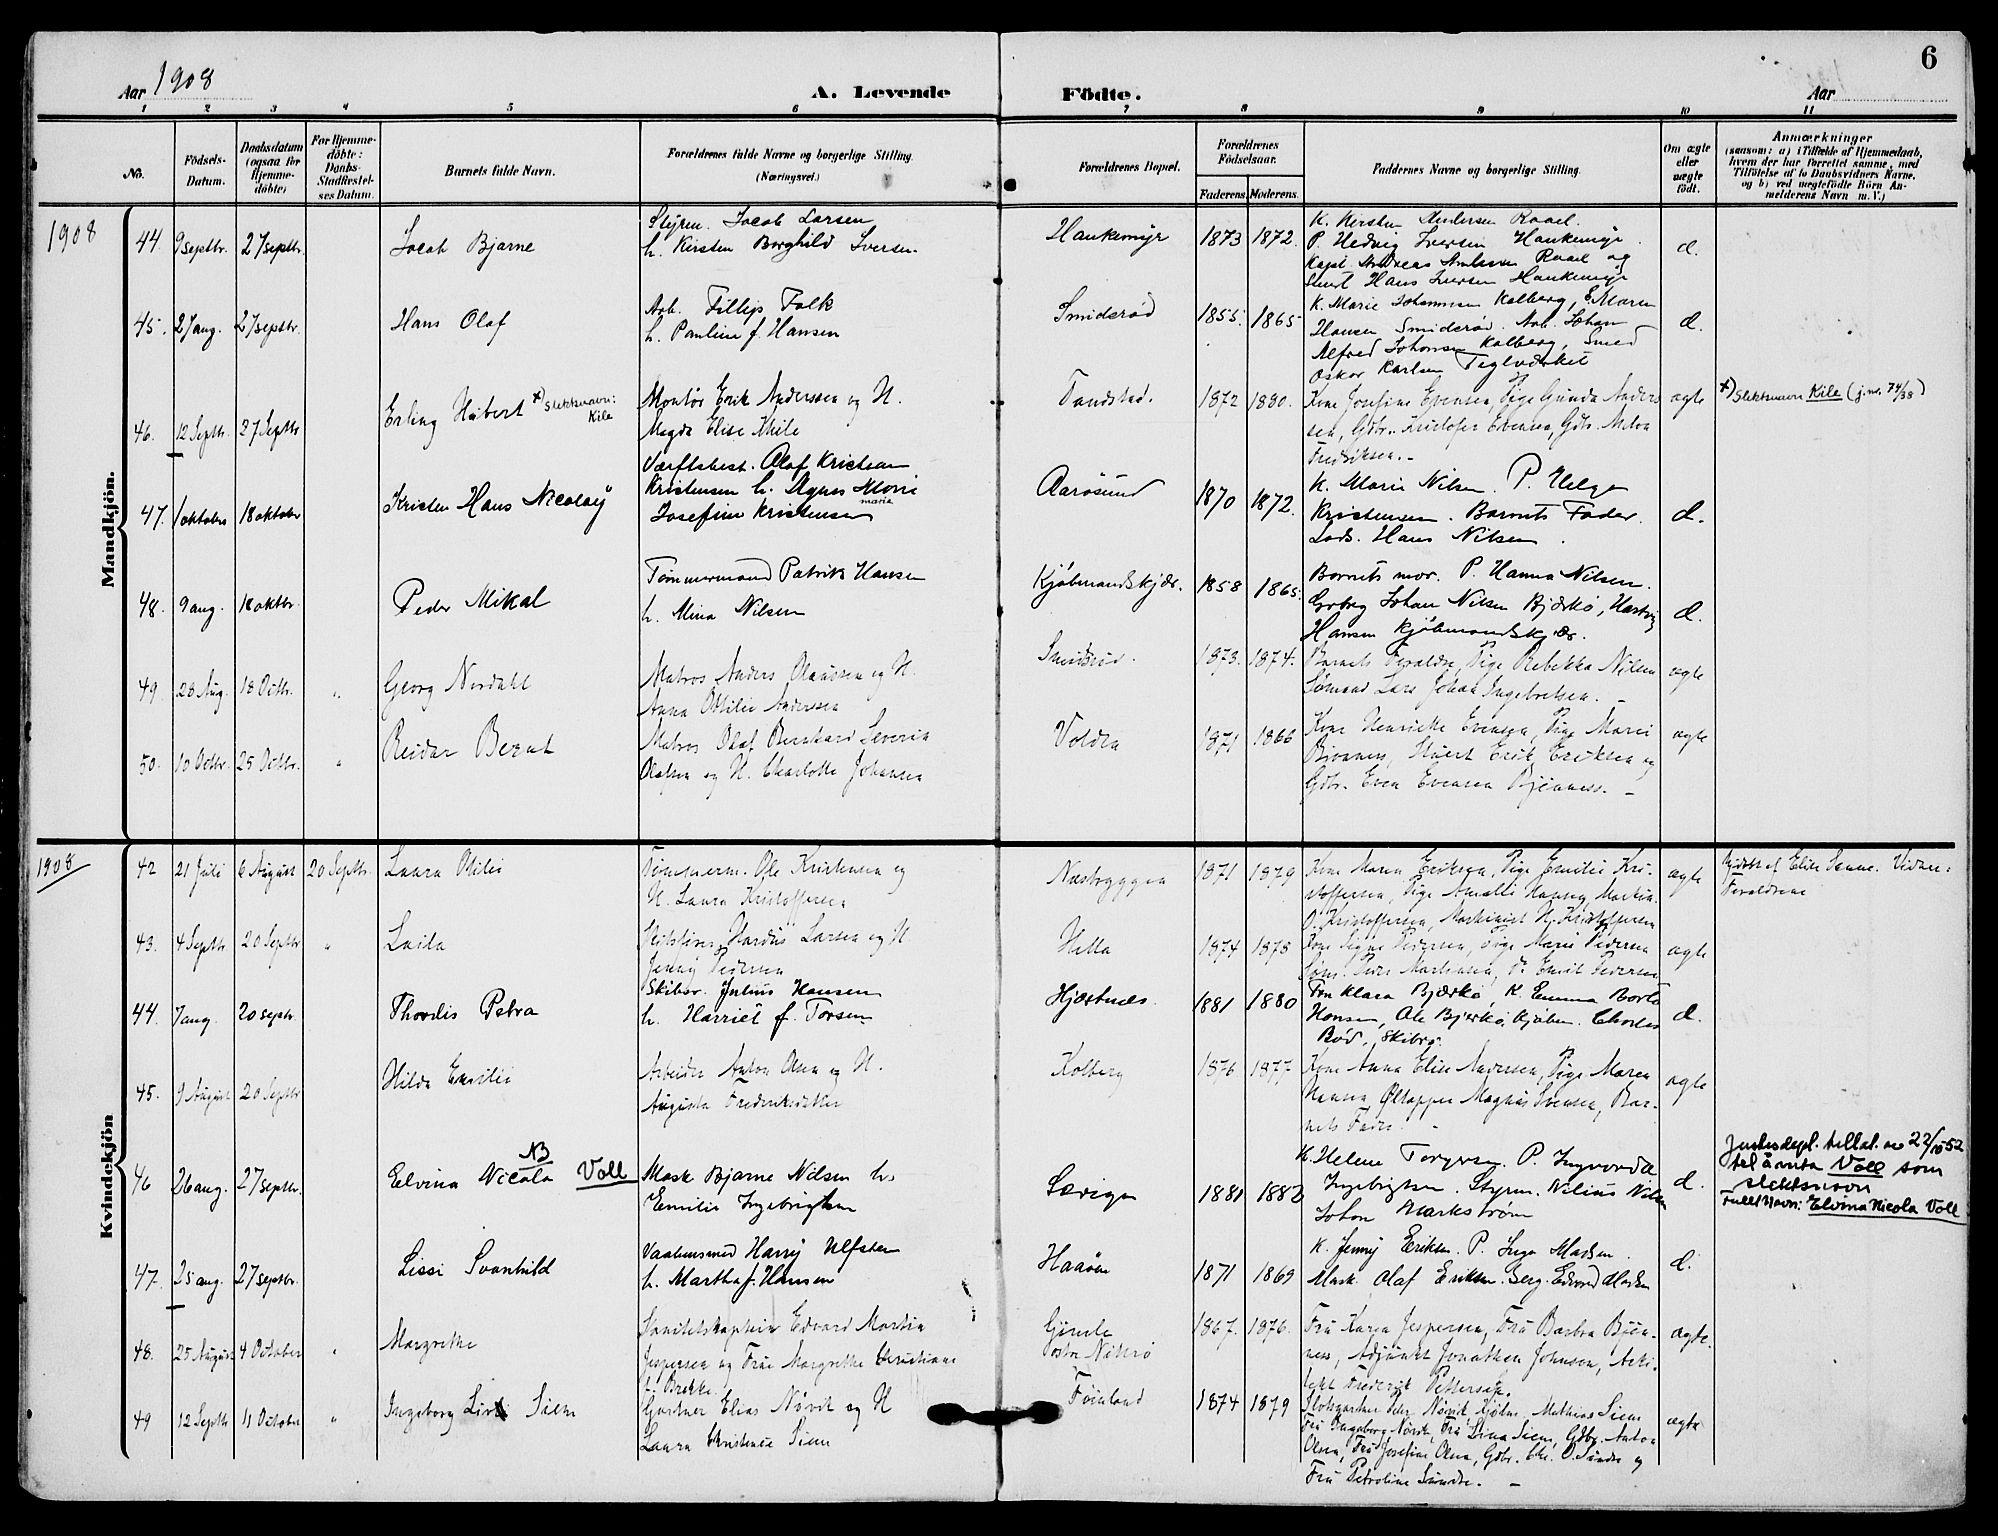 Aar 1908
A. Levende Födte.
Aar
6
1 2 3 4 5 6 7 8 9 10 11
No.
Födsels-Datum.
Daabsdatum (ogsaa for Hjemme-döbte)
For Hjemme-döbte: Daabs-Stadfæstel-ses Datum.
Barnets fulde Navn.
Forældrenes fulde Navne og borgerlige Stilling. (Næringsvei.)
Forældrenes Bopæl.
Forældrenes Födselsaar.
Faderens. Moderens.
Faddernes Navne og borgerlige Stilling.
Om ægte eller uægte födt.
Anmærkninger
(saasom: a) i Tilfælde af Hjemmedaab, hvem der har forrettet samme, med Tilföielse af to Daabsvidners Navne, og b) ved uægtefödte Börn An-melderens Navn m. V.)
Mandkjön.
1908
44. 9 septbr. 27 septbr. Jacob Bjarne
Styrm. Jacob Larsen
h. Kirsten Borghild Iversen
Hankemyr 1873 1872.
K. Kirsten Andersen Raael.
P. Hedvig Iversen Hankemyr.
Kapt. Andreas Andersen Raael og
Stuert Hans Iversen Hankemyr
d.
45. 27 aug. 27 septbr. Hans Olaf
Arb. Fillip Falk
h. Pauline f. Hansen
Smiderød 1855. 1865
K. Marie Johannesen Kolberg, E. Maren
Hansen Smiderød. Arb. Johan
Alfred Johansen Kolberg, Smed
Oskar Karlsen Teglværket
d.
46. 12 Septbr. 27 Septbr Erling Hubert x) Slektsnavn: Kile
Montør Erik Anderssen og H.
Magda Elise Khile
Tandstad. 1872 1880.
Kone Josefine Evensen, Pige Gunda Anders
sen, Gdbr. Kristofer Evensen, Gdbr. Anton
Fredriksen. -
ægte
x) Slektsnavn Kile (j.nr. 74/38)
47. 1 oktober 18 oktober Kristen Hans Nicolay
Værftsbest. Olaf Kristian
Kristensen h. Agnes Marie
Josefine Kristensen
Aarøsund 1870 1872.
K. Marie Nilsen. P. Helga
Kristensen. Barnets Fader.
Lods. Hans Nilsen.
d.
48. 9 aug. 18 oktbr. Peder Mikal
Tømmermand Patrik Hansen
h. Mina Nilsen
Kjøbmandskjær. 1858 1865.
Barnets mor. P. Hanna Nilsen.
Grbrg Johan Nilsen Bjerkø, Hartvig
Hansen Kjøbmandskjær.
d.
49 28 Aug. 18 Octbr. " Georg Nordahl
Matros Anders Olaussen og H.
Anna Ottilie Anderssen
Smidsrød. 1873. 1874.
Barnets Forældre, Pige Rebekka Nilsen
Sømand Lars Johan Ingebretsen. -
ægte
50. 10 Octbr. 25 Octbr. " Reidar Bernt
Matros Olaf Bernhard Severin
Olafsen og H. Charlotte Johansen
Volden 1871 1866
Kone Henriette Evensen, Pige Marie
Bjønnes, Stuert Erik Eriksen og
Gdbr. Even Evensen Bjønness. -
ægte
Kvindekjön
1908
42 21 Juli 6 August 20 Septbr. Laura Otilie
Tømmerm. Ole Kristensen og
H. Laura Kristoffersen
Næsbryggen 1871 1879
Kone Maren Eriksen, Pige Emilie Kri-
stoffersen, Pige Amalie Hansen, Maskin.
O. Kristoffersen, Maskinist H. Kristoffersen
ægte
Hjdøbt af Elise Sanne. Vidner:
Forældrene
43. 4 Septbr 20 Septbr " Laila
Hardus Larsen og H.
Jenny Pedersen
Hella 1874 1878
Kone Signe Pedersen, Pige Marie Pedersen
Søm. Peder Martinsen, Emil Pedersen
ægte
44. 7 aug. 20 septbr. Thordis Petra
Skibsr. Julius Hansen
h. Harriet f. Torsen
Hjæstnes. 1881 1880
Fru Klara Bjærkø, K. Emma Bortø
Hansen, Ole Bjerkø, Kjøbm. Charles
Bød, Skibrø.
d.
45. 9 August 20 Septbr Hilda Emilie
Arbeider Anton Olsen og H.
Augusta Frederiksdatter
Kolberg 1876 1877
Kone Anna Elise Andersen, Pige Maren
Hansen Øltapper Magnus Svensen, Bar-
nets Fader. -
ægte
46 26 aug. 27 septbr. Elvina Nicola NB Voll
Mask Bjarne Nilsen h.
Emilie Ingebrigtsen
Sævigen 1881 1882
K. Helene Torgersen. P. Ingvarda
Ingebrigtsen. Styrm. Nilius Nilsen
Johan Markstrøm
d.
Justisdepl. tillat. av 22/10 52
til å nytte Voll som
slektsnavn
Fullt navn: Elvina Nicola Voll
47. 25 aug. 27 septbr. Lissi Svanhild
Vaabensmed Harry Ulfsten
h. Martha f. Hansen
Haaøen 1871 1869
K. Jenny Eriksen. P. Inga Madsen.
Mask. Olaf Eriksen. Serg. Edvard Madsen
d.
48. 25 August 4 October " Margrethe
Sanitetskaptein Edvard Martin
Jespersen og Frue Margrethe Christiane
f. Brekke.
Gimle
Nøtterø 1867. 1876.
Fru Karen Jespersen, Fru Barbra Bjøn-
ness, Adjunkt Jonathan Johnsen, Arki-
tekt Frederik Pettersen.
ægte.
49 12 Septbr 11 October " Ingeborg Siem
Gartner Elias Nøvik og H
Laura Christense Siem
Føinland 1874 1879
Slotsgartner Peder Nøvik, Kjøbm. Mathias Siem
Fru Ingeborg Nøvik, Fru Lina Siem, Gdbr. Anton
Olsen, Fru Josefine Olsen, Gdbr. Chr. O. Sunde og
Fru Petroline Sunde. -
ægte